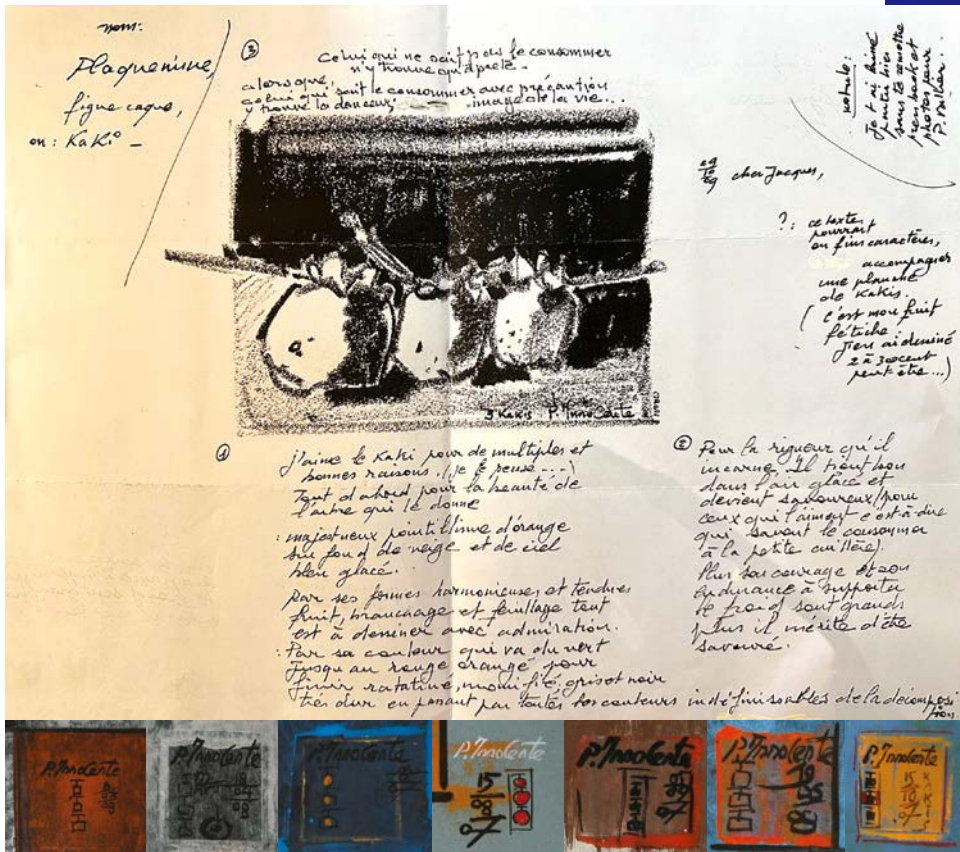 nom:
Plaquemine,
figue caque,
ou: Kaki -
③
Celui qui ne sait pas le consommer
n'y trouve qu'âpreté -
alors que,
celui qui sait le consommer avec précaution
y trouve la douceur, - image de la vie...
notule:
Je t'ai aimé
hier
sans te remettre
et
photos pour
P.
29
10
09
cher Jacques,
?: ce texte
pourrait
en fins caractères,
accompagner
une planche
de Kakis.
( c'est mon fruit
fétiche.
J'en ai dessiné
2 à 300 cent
peut être...)
3 Kakis P. Innocente
①
J'aime le Kaki pour de multiples et
bonnes raisons. (je le pense ---)
Tout d'abord pour la beauté de
l'arbre qui le donne
: majestueux pointillisme d'orange
sur fond de neige et de ciel
bleu glacé.
Par ses formes harmonieuses et tendres
fruit, branchage et feuillage tout
est à dessiner avec admiration.
: Par sa couleur qui va du vert
jusqu'au rouge orangé, pour
finir ratatiné, momifié, gris et noir
très dur en passant par toutes les couleurs indéfinissables de la décomposi
tion.
② Pour la rigueur qu'il
incarne. Il tient bon
dans l'air glacé et
devient savoureux (pour
ceux qui l'aiment c'est-à-dire
qui savent le consommer
à la petite cuillère).
Plus son courage et son
endurance à supporter
le froid sont grands
plus il mérite d'être
savouré.
P. Innocente
P. Innocente
P. Innocente
P. Innocente
15
08
07
P. Innocente
07
P. Innocente
P. Innocente
15
10
07
KAKIS